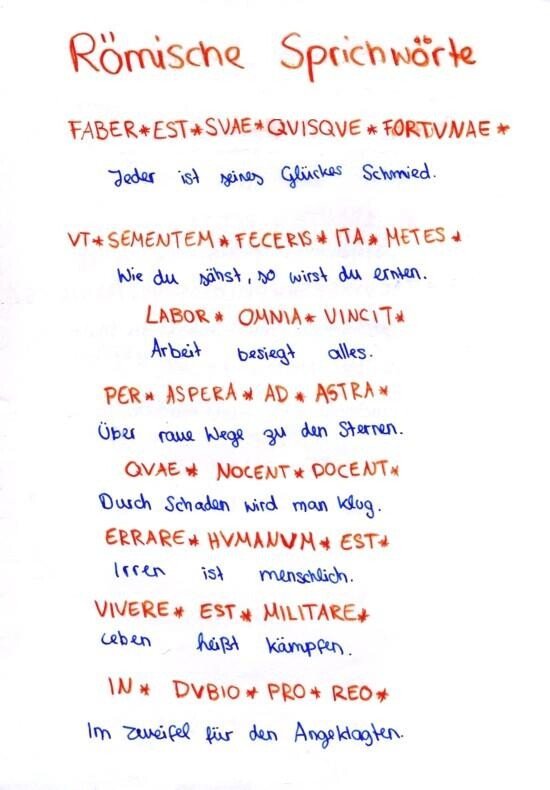 Römische Sprichwörte
FABER*EST*SVAE*QVISQVE*FORTVNAE*
Jeder ist seines Glückes Schmied.
VT*SEMENTEM*FECERIS*ITA*METES*
Wie du sähst, so wirst du ernten.
LABOR*OMNIA*VINCIT*
Arbeit besiegt alles.
PER*ASPERA*AD*ASTRA*
Über raue Wege zu den Sternen.
QVAE*NOCENT*DOCENT*
Dusch Schaden wird man klug.
ERRARE*HVMANVM*EST*
Irren ist menschlich.
VIVERE*EST*MILITARE*
Leben heißt kämpfen.
IN*DVBIO*PRO*REO*
Im zweifel für den Angeklagten.